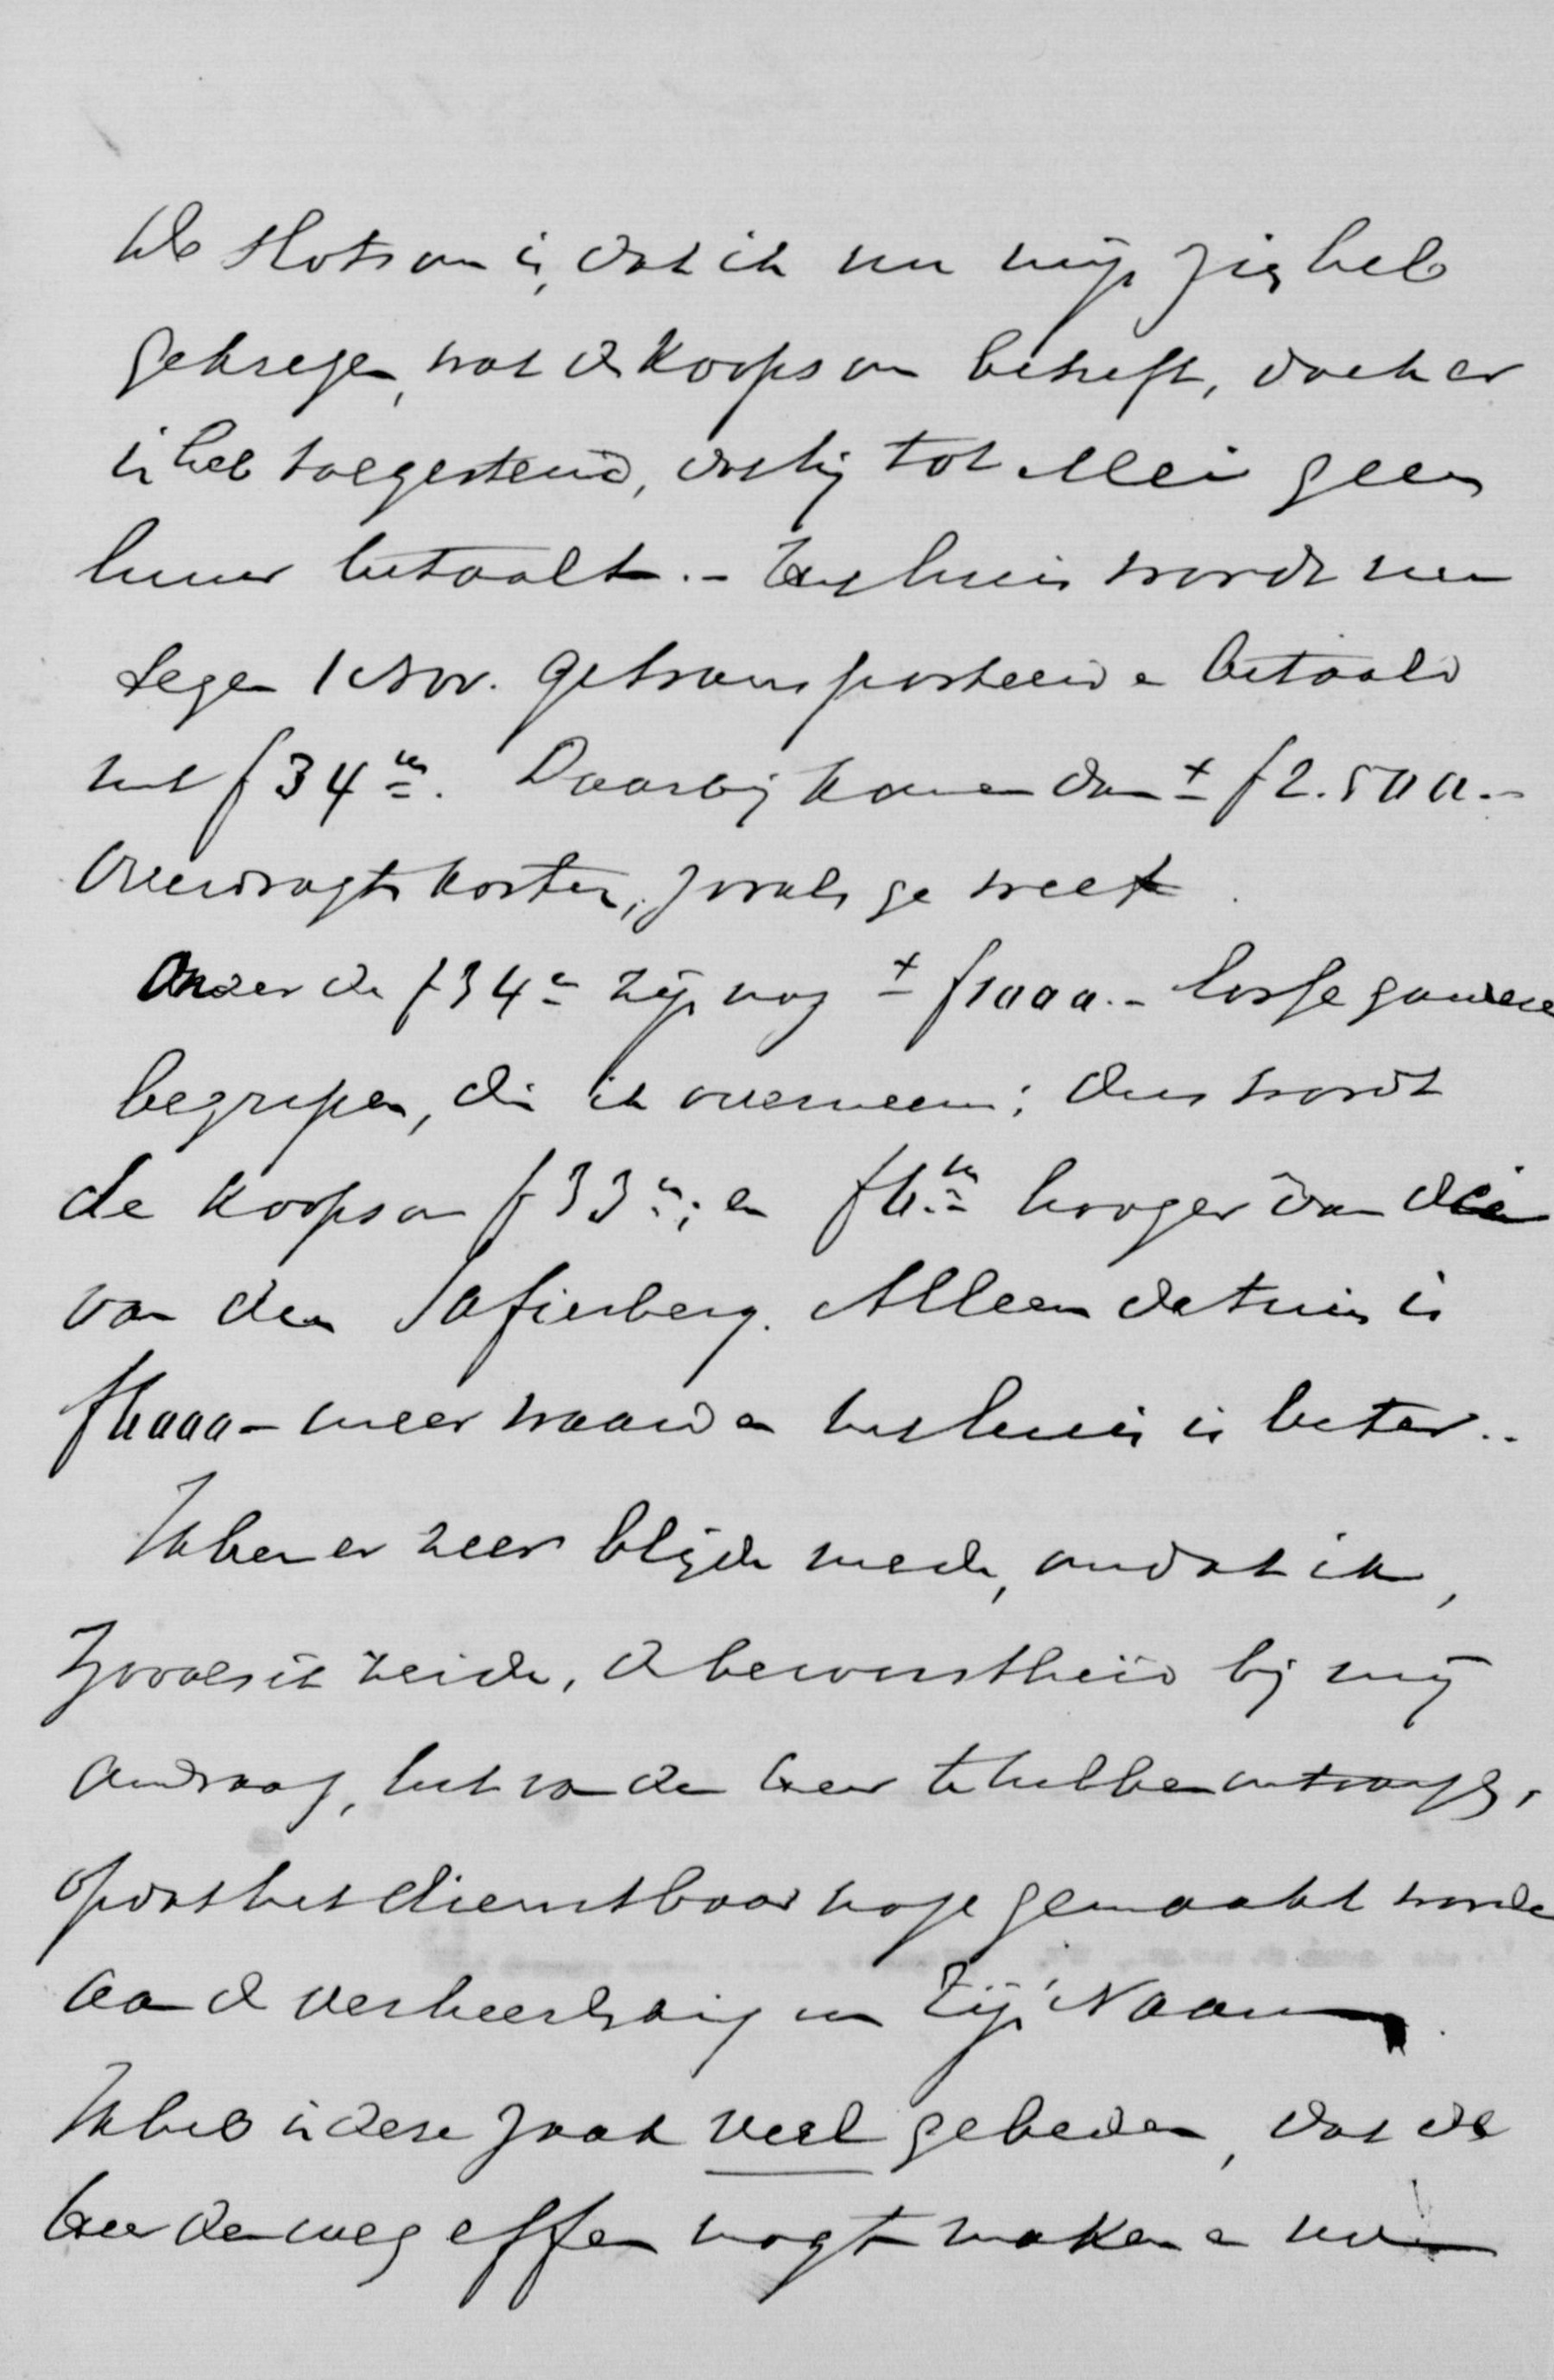 De slotsom is, dat ik nu mijn zin heb
gekregen, wat de koopsom betreft, doch er
in heb toegestemd, dat hij tot Mei geen
huur betaalt. - Het huis wordt nu
tegen 1 Nov. getransporteerd en betaald
met f 34 m. Daarbij komen dan ± f 2.500.-
overdragtskosten, zooals ge weet.
Onder de f 34 m zijn nog ± f 1000.- losse goederen
begrepen, die ik overneem; dus wordt
de koopsom f 33 m; en f 6 m hooger dan die
van den Safierberg. Alleen de tuin is
f 6000 - meer waard en het huis is beter..
Ik ben er zeer blijde mede, omdat ik,
zooals ik zeide, de bewustheid bij mij
omdraag, het van den Heer te hebben ontvangen,
opdat het dienstbaar moge gemaakt worden
aan de verheerlijking van Zijn Naam.
Ik heb in deze zaak veel gebeden, dat de
Heer den weg effen mogt maken en